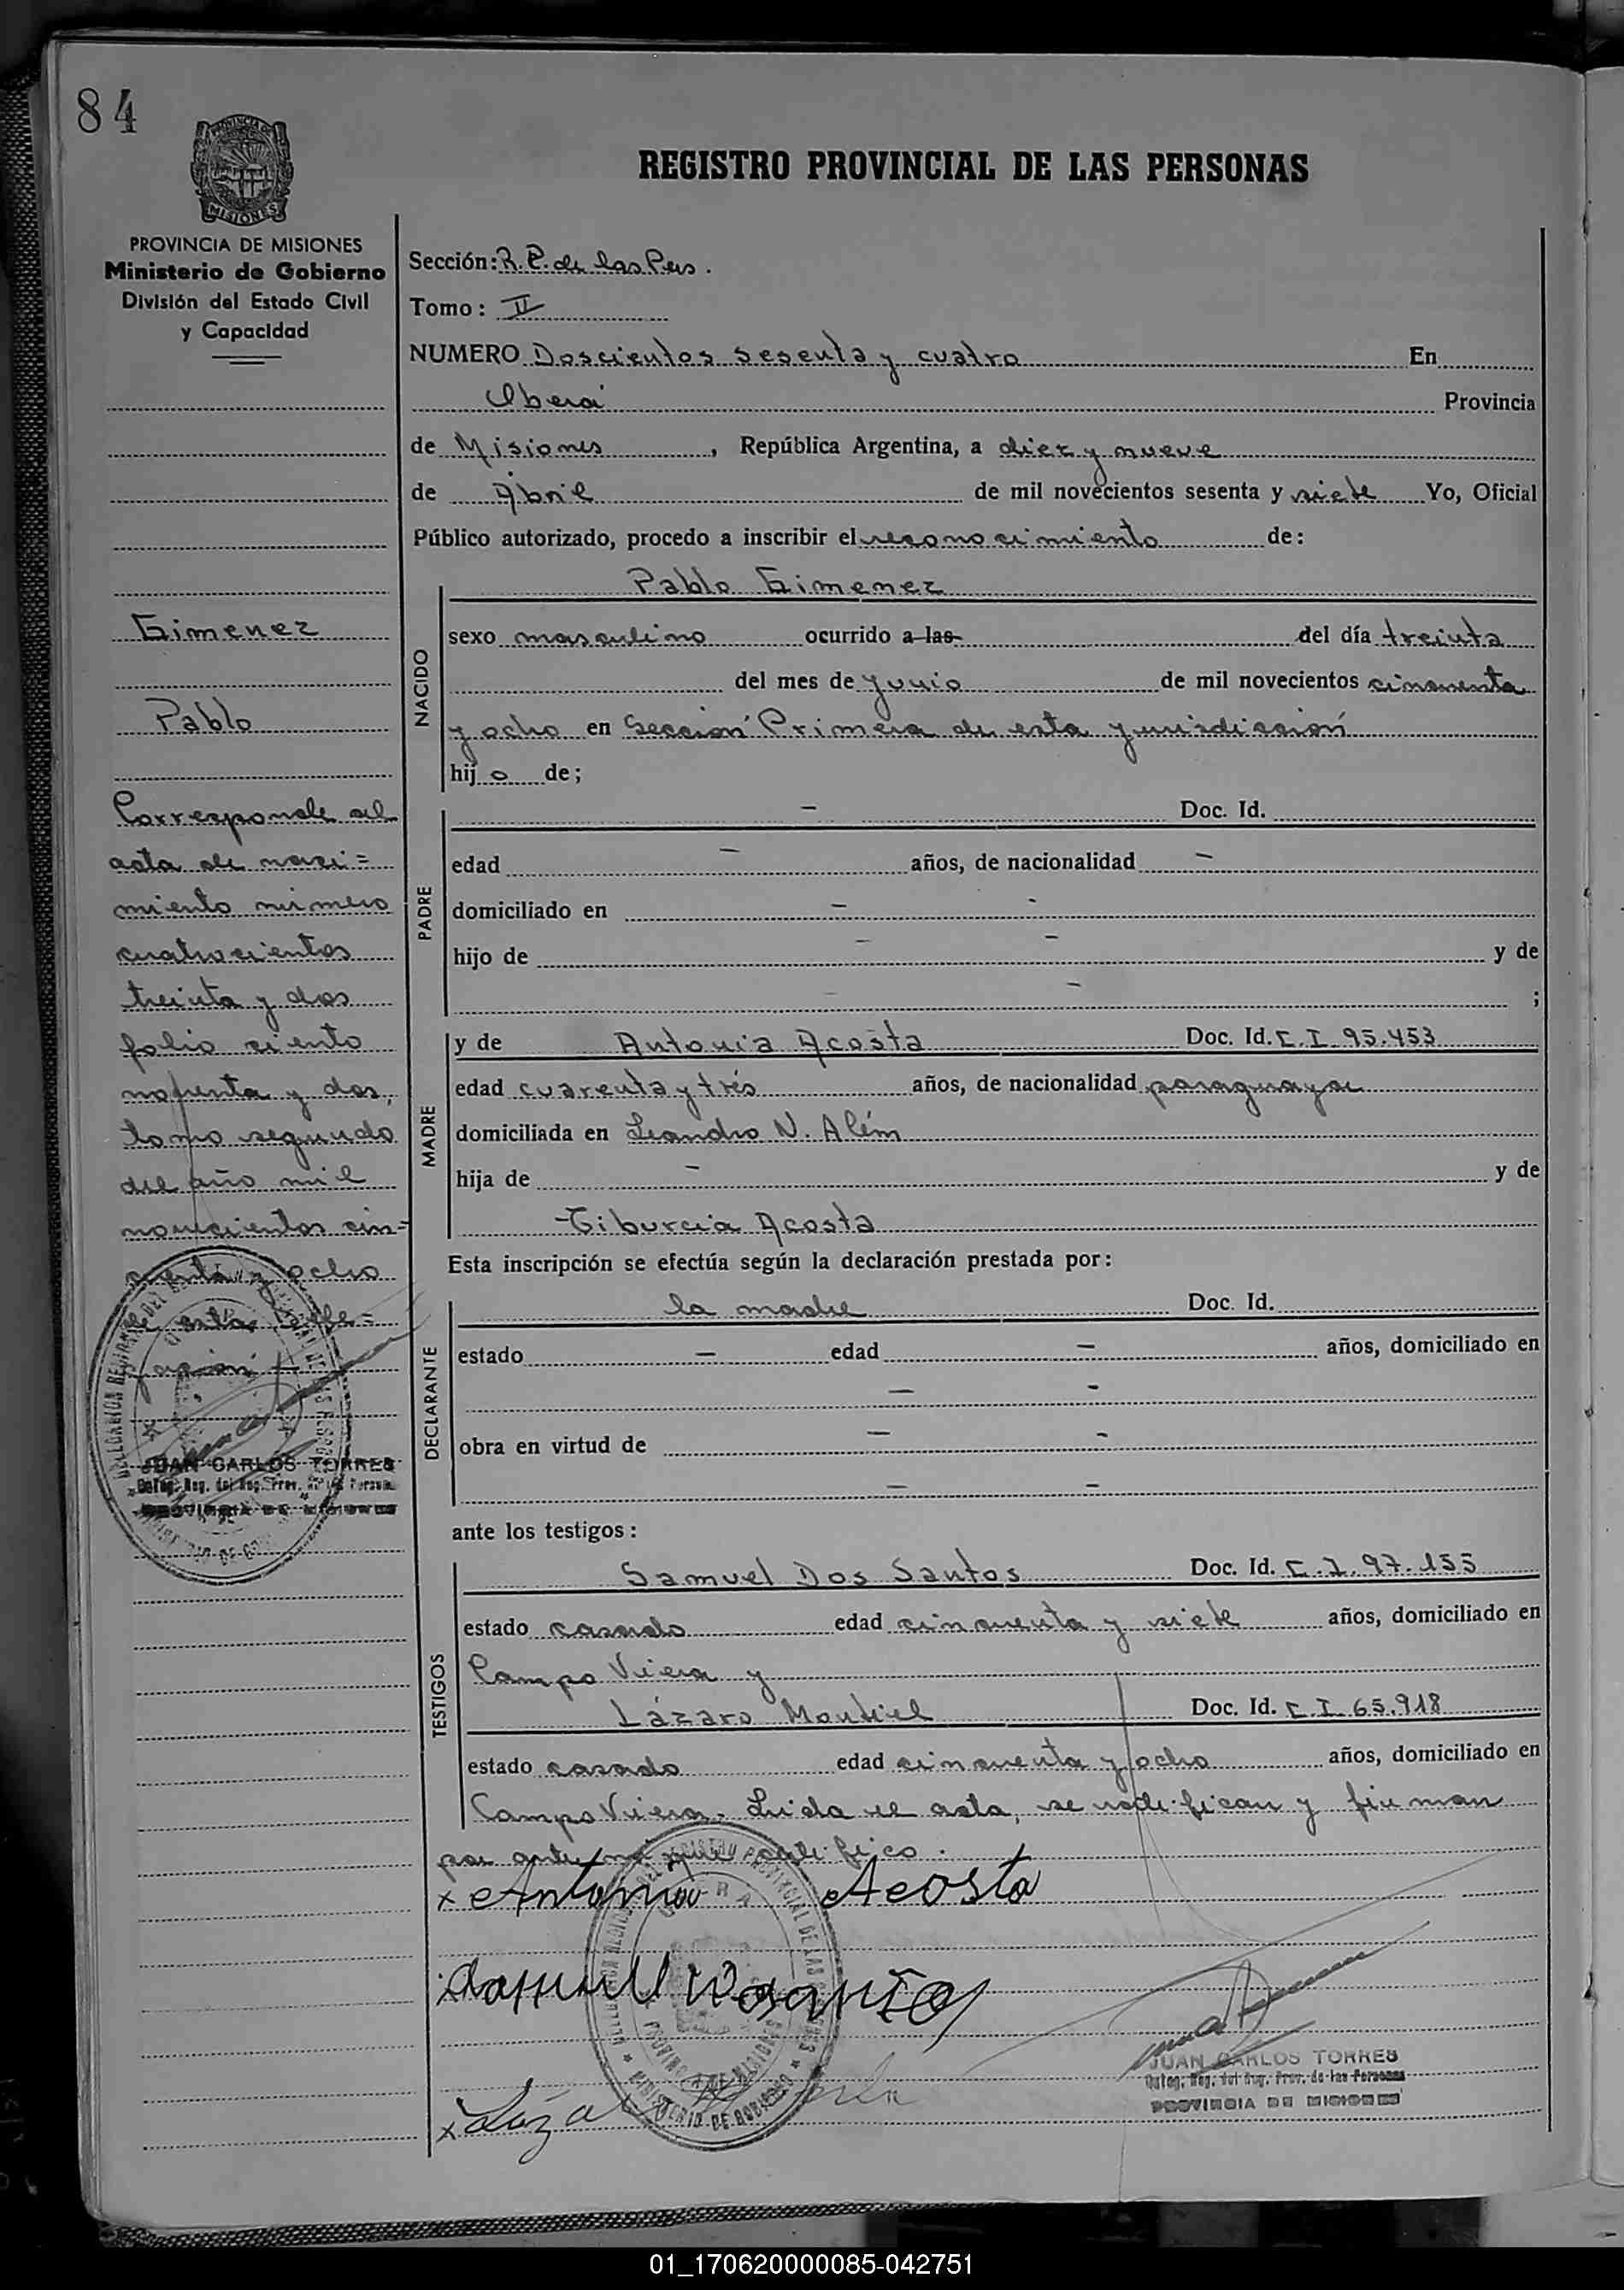 84
PROVINCIA DE MISIONES
MISIONES
PROVINCIA DE MISIONES
Ministerio de Gobierno
División del Estado Civil
y Capacidad
Gimenez
Pablo
Corresponde al
acta de naci=
miento número
cuatrocientos
treinta y dos
folio ciento
noventa y dos,
tomo segundo
del año mil
novecientos cin=
cuenta y ocho
de esta
JUAN CARLOS TORRES
PROVINCIA DE MISIONES
REGISTRO PROVINCIAL DE LAS PERSONAS
Sección: R. P. de las Pers.
Tomo: II
NUMERO Doscientos sesenta y cuatro En
Oberá Provincia
de Misiones, República Argentina, a diez y nueve
de Abril de mil novecientos sesenta y siete Yo, Oficial
Público autorizado, procedo a inscribir el reconocimiento de:
NACIDO
Pablo Gimenez
sexo masculino ocurrido a las del día treinta
del mes de Junio de mil novecientos cincuenta
y ocho en Sección Primera de esta jurisdicción
hijo de;
PADRE
- Doc. Id.
edad - años, de nacionalidad -
domiciliado en - -
hijo de - - y de
- - ;
MADRE
y de Antonia Acosta Doc. Id. C. I. 95.453
edad cuarenta y trés años, de nacionalidad paraguaya
domiciliada en Leandro N. Além
hija de - y de
Tiburcia Acosta
Esta inscripción se efectúa según la declaración prestada por:
DECLARANTE
la madre Doc. Id.
estado - edad - años, domiciliado en
- -
obra en virtud de - -
- -
ante los testigos:
TESTIGOS
Samuel Dos Santos Doc. Id. C. I. 97.155
estado casado edad cincuenta y siete años, domiciliado en
Campo Viera y
Lázaro Montiel Doc. Id. C. I. 65.918
estado casado edad cincuenta y ocho años, domiciliado en
Campo Viera. Leida el acta, se ratifican y firman
por ante mí que certifico.
x Antonia Acosta
x Lázaro
JUAN CARLOS TORRES
Deleg. Reg. del Reg. Prov. de las Personas
PROVINCIA DE MISIONES
01_170620000085-042751